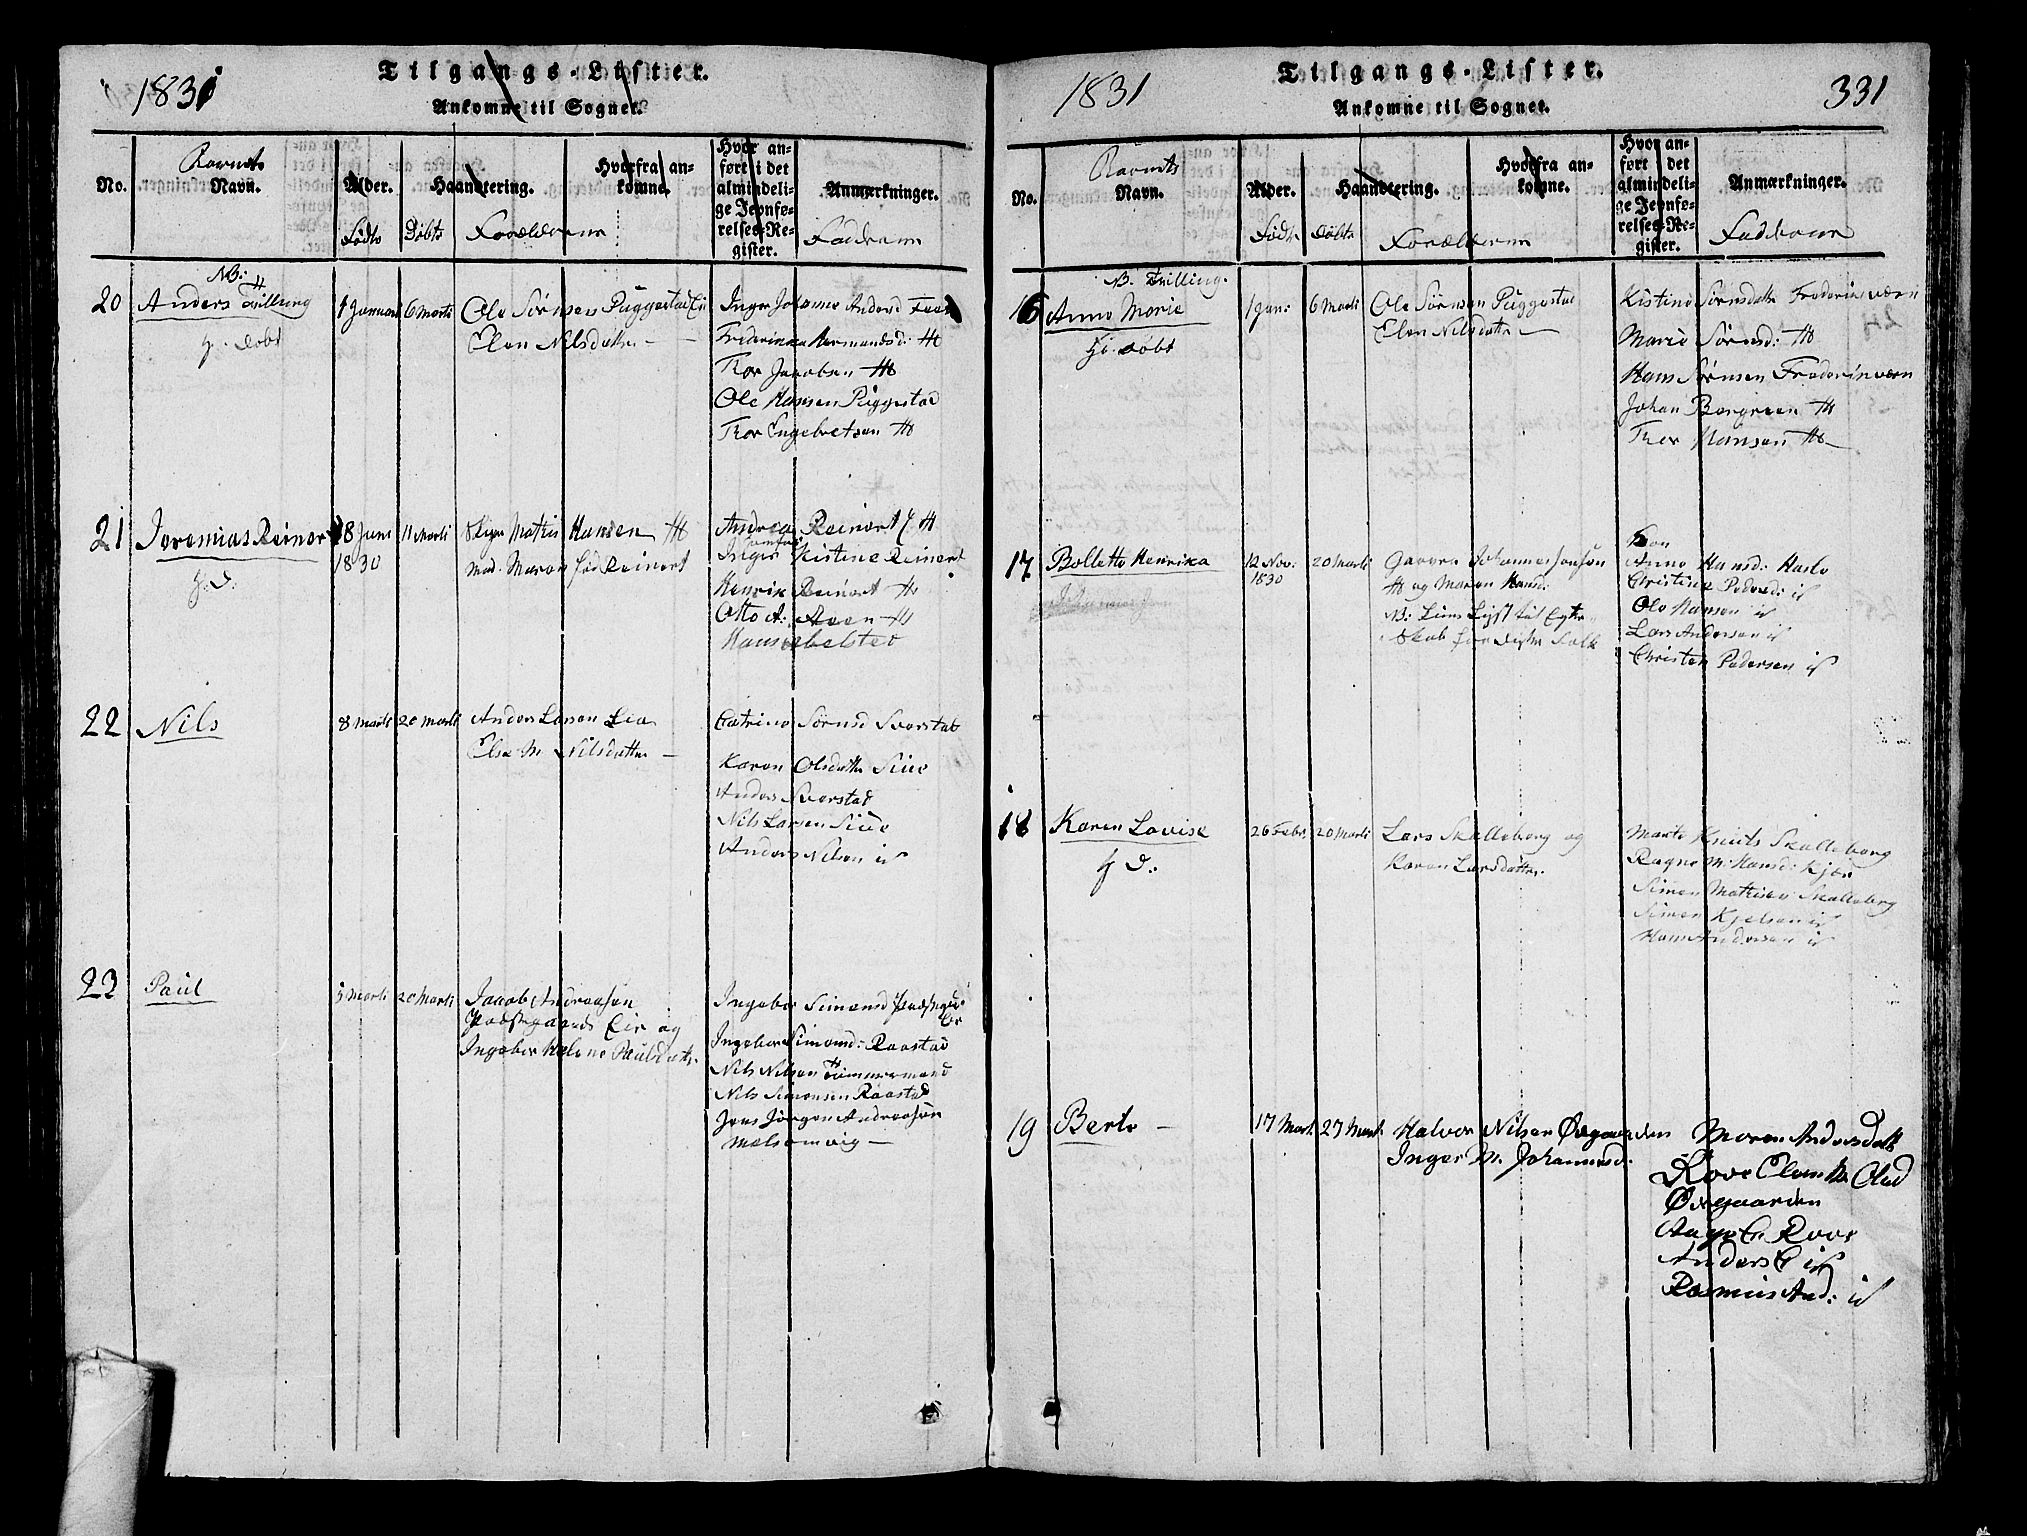 1831
Tilgangs-Lister.
Ankomne til Sognet.
No.
Barnets
Navn.
Alder.
Haandtering.
Hvorfra ankomne.
Hvor anført i det almindelige Jevnførelses-Register.
Anmærkninger.
Født
Døbt
Forælderne
Fadderne
20
NB:
Anders Tvilling
Hj. Døbt
1 Januari
6 Marti
Ole Sørnsen Puggestad Eie
Elen Nilsdatter
Inger Johanne Andersd
Frederikka Hermandsd:
Thor Jacobsen
Ole Hansen Puggestad
Thor Engebretsen
21
Jeremias Reinert
H. D.
18 Juni
1830
11 Marti
Mathis Hansen
Mad. Maren fød Reinert
Andrea Reinert
Jomfru
Inger Kistine Reinert
Henrik Reinert
Otto A:
Hans
22
Nils
8 Marti
20 Marti
Anders Larsen Lia
Else M. Nilsdatter
Catrine Sørnsd Sverstad
Karen Olsdatter Siue
Anders Sverstad
Nils Larsen Siue
Anders Nilsen ib
23
Paul
5 Marti
20 Marti
Jacob Andreasen
Præstegaards Eie og
Ingebor Helene Paulsdatr.
Ingebor Simensd Præstegrd
Eie
Ingebor Simensd: Raastad
Nils Nilsen Timmermand
Nils Simensen Raastad
Jens Jørgen Andreasen
Melsomvig
1831
Tilgangs-Lister.
Ankomne til Sognet.
331
No.
Barnets
Navn.
Alder.
Haandtering.
Hvorfra ankomne.
Hvor anført i det almindelige Jevnførelses-Register.
Anmærkninger.
Født
Døbt
Forælderne
Fadderne
16
B. Tvilling.
Anne Marie
Hj. Døbt
1 Jani
6 Marti
Ole Sørnsen Puggestad
Elen Nilsdatter
Kistine Sørnsdatter Frederiksværn
Marie Sørnsd:
Hans Sørnsen Frederiksværn
Johan Bergreen
Thor Hansen
17
Bollette Henrika
12 Nov:
1830
20 Marti
Johannes Jonsen
og Maren Hansd:
Anne Hansd: Hasle
Christine Pedersd: ib
Ole Hansen ib
Lars Andersen ib
Christen Pedersen ib
18
Karen Lovise
H D.
26 Febr.
20 Marti
Lars Skalleberg og
Karen Larsdatter
Marte Knuts Skalleberg
Ragne M: Hansd: Kjær
Simen Mathisen Skalleberg
Simen Kjelsen ib
Hans Andersen ib
19
Berte
17 Mart.
27 Mart.
Halvor Nilsen Øegaarden
Inger M. Johannesd:
Maren Andersdatt
Rove Elen M. Olsd
Øegaarden
Aage E. Rove
Anders E ib
Rasmus And: ib